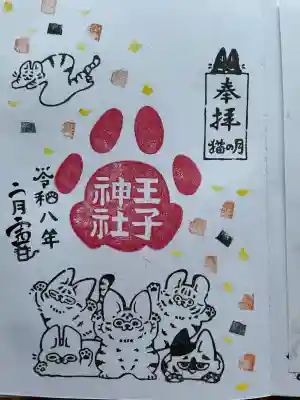 奉拝
猫の月
王子
神社
令和八年
二月吉日